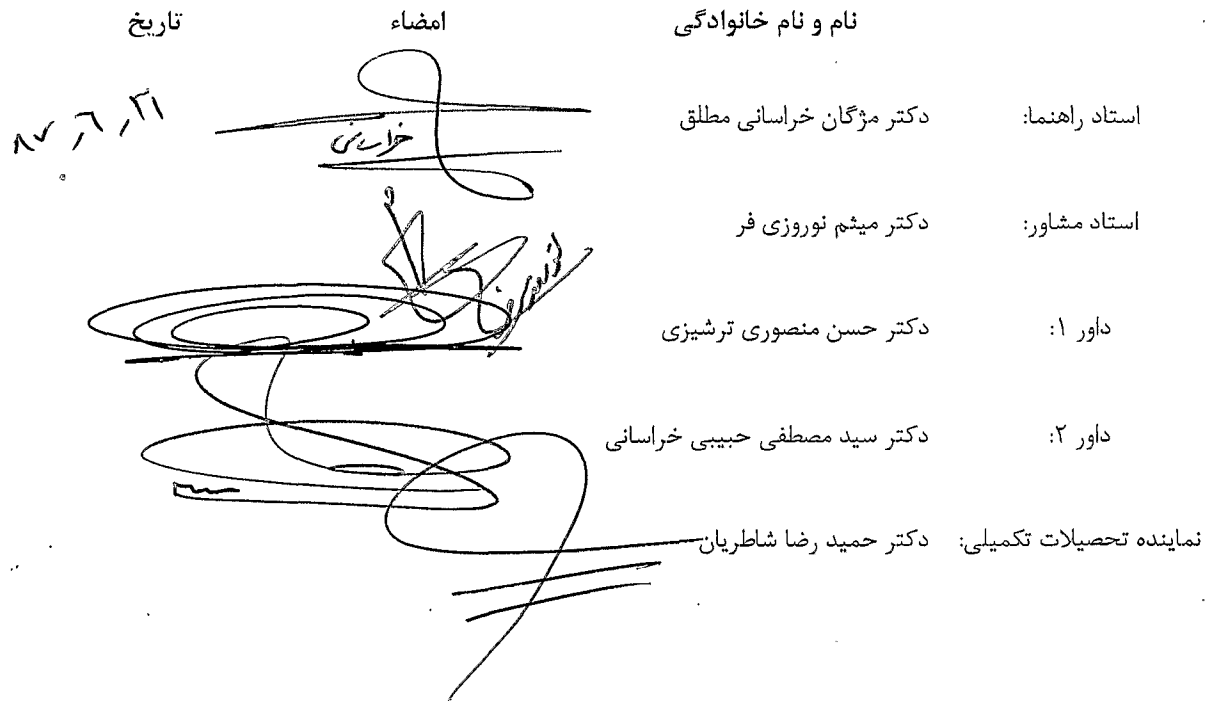 نام و نام خانوادگی امضاء تاریخ
استاد راهنما: دکتر مژگان خراسانی مطلق خراسانی ۸۷٫۶٫۳۱
استاد مشاور: دکتر میثم نوروزی فر
داور ۱: دکتر حسن منصوری ترشیزی
داور ۲: دکتر سید مصطفی حبیبی خراسانی
نماینده تحصیلات تکمیلی: دکتر حمید رضا شاطریان